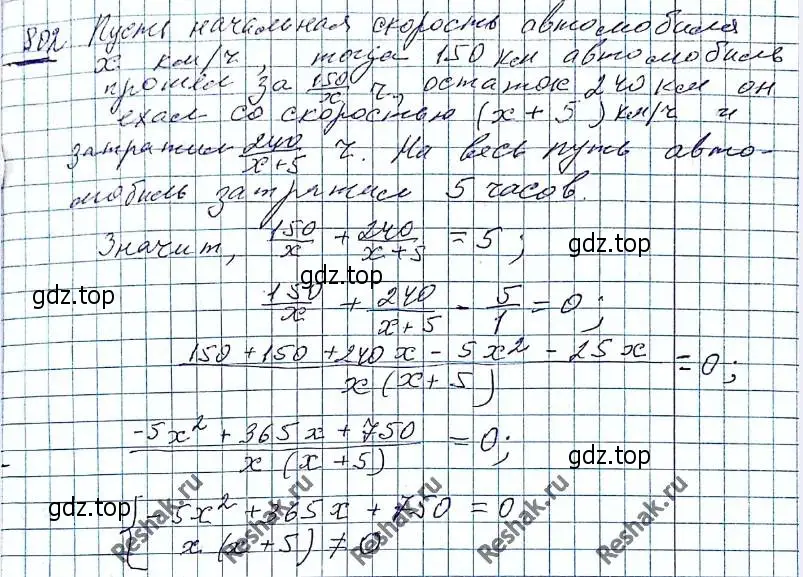 802 Пусть начальная скорость автомобиля
x км/ч, тогда 150 км автомобиль
прошел за 150/x ч., остаток 240 км он
ехал со скоростью (x + 5) км/ч и
затратил 240/(x+5) ч. На весь путь авто-
мобиль затратил 5 часов.
Значит, 150/x + 240/(x+5) = 5;
гдз.top
гдз.top
гдз.top
150/x + 240/(x+5) - 5/1 = 0;
(150 + 150 + 240x - 5x² - 25x)/(x(x+5)) = 0;
(-5x² + 365x + 750)/(x(x+5)) = 0;
гдз.top
гдз.top
{-5x² + 365x + 750 = 0
x(x+5) ≠ 0
Reshak.ru
Reshak.ru
Reshak.ru